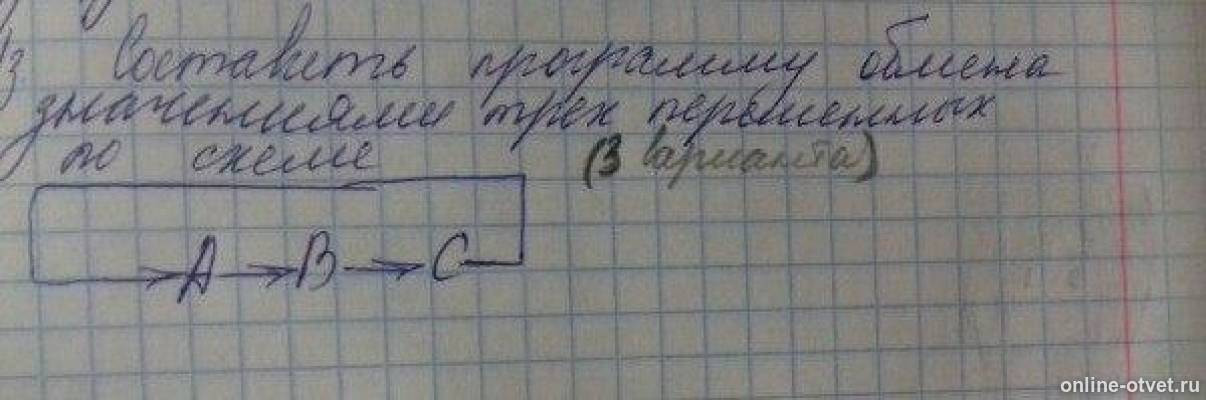 Составить программу обмена
значениями трех переменных
по схеме (3 варианта)
A B C
online-otvet.ru